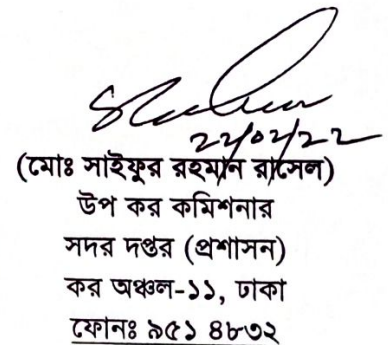 ২২/০২/২২
(মোঃ সাইফুর রহমান রাসেল)
উপ কর কমিশনার
সদর দপ্তর (প্রশাসন)
কর অঞ্চল-১১, ঢাকা
ফোনঃ ৯৫১ ৪৮৩২